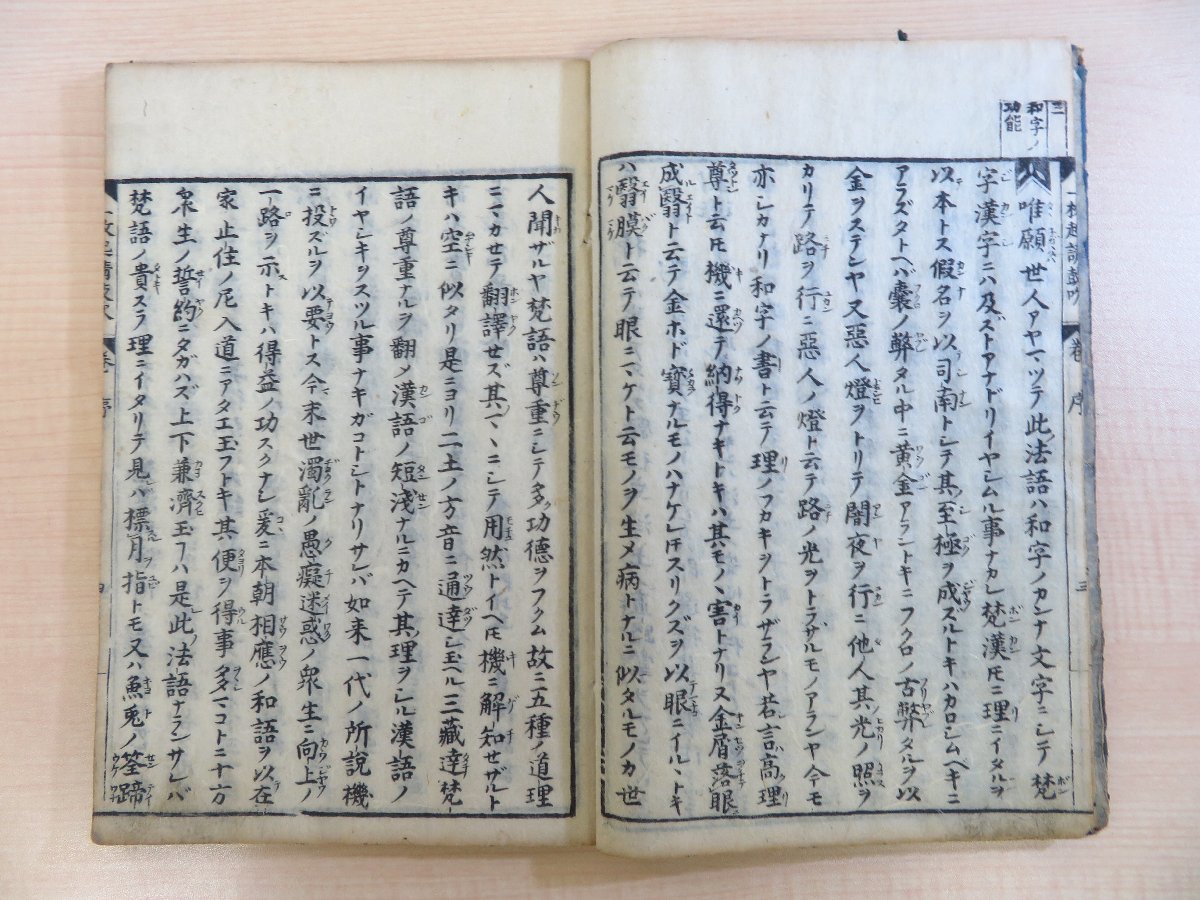 三
和字ノ
功能
一枚起請鼓吹 巻 序 三
唯願世人アヤマツテ此ノ法語ハ和字ノカンナ文字ニシテ梵
字漢字ニハ及ズトアナドリイヤシムル事ナカレ梵漢𪜈ニ理ニイタルヲ
以本トス假名ヲ以司南トシテ其至極ヲ成ズルトキハカロシムベキニ
アラズタトヘバ囊ノ弊タル中ニ黄金アラントキニフクロノ古弊タルヲ以
金ヲステンヤ又惡人燈ヲトリテ闇夜ヲ行ニ他人其光ノ照ヲ
カリテ路行ニ惡人ノ燈ト云テ路ノ光ヲトラザルモノアランヤ今モ
亦シカナリ和字ノ書ト云テ理ノフカキヲトラザランヤ若言高理
尊ト云𪜈機ニ還テ納得ナキトキハ其ハモノヽ害トナリヌ金屑落眼
成翳ト云テ金ホド寳ナルモノハナケレ𪜈スリクズヲ以眼ニイルヽトキ
ハ翳膜ト云テ眼ニマケト云モノヲ生メ病トナルニ似タルモノカ世
人聞ザルヤ梵語ハ尊重ニシテ多功德ヲフクム故ニ五種ノ道理
ニマカセテ翻譯せズ其ノマヽニシテ用然トイヘ𪜈機ニ解知せザルト
キハ空ニ似タリ是ニヨリ二土ノ方音ニ通達シ玉ヘル三藏達梵
語ノ尊重ナルヲ翻メ漢語ノ短淺ナルニカヘテ其理ヲシル漢語ノ
イヤシキヲスツル事ナキガコトシトナリサレバ如来一代ノ所説機
ニ投ズルヲ以要トス今末世濁亂ノ愚癡迷惑ノ衆生ニ向上ノ
一路ヲ示トキハ得益ノ功スクナシ爰ニ本朝相應ノ和語ヲ以在
家止住ノ尼入道ニアタエ玉フトキ其便ヲ得事多マコトニ十方
衆生ノ誓約ニタガハズ上下兼濟玉フハ是此ノ法語ナランサレバ
梵語ノ貴スラ理ニイタリテ見バ標月ヲ指トモ又ハ魚兎ノ筌蹄